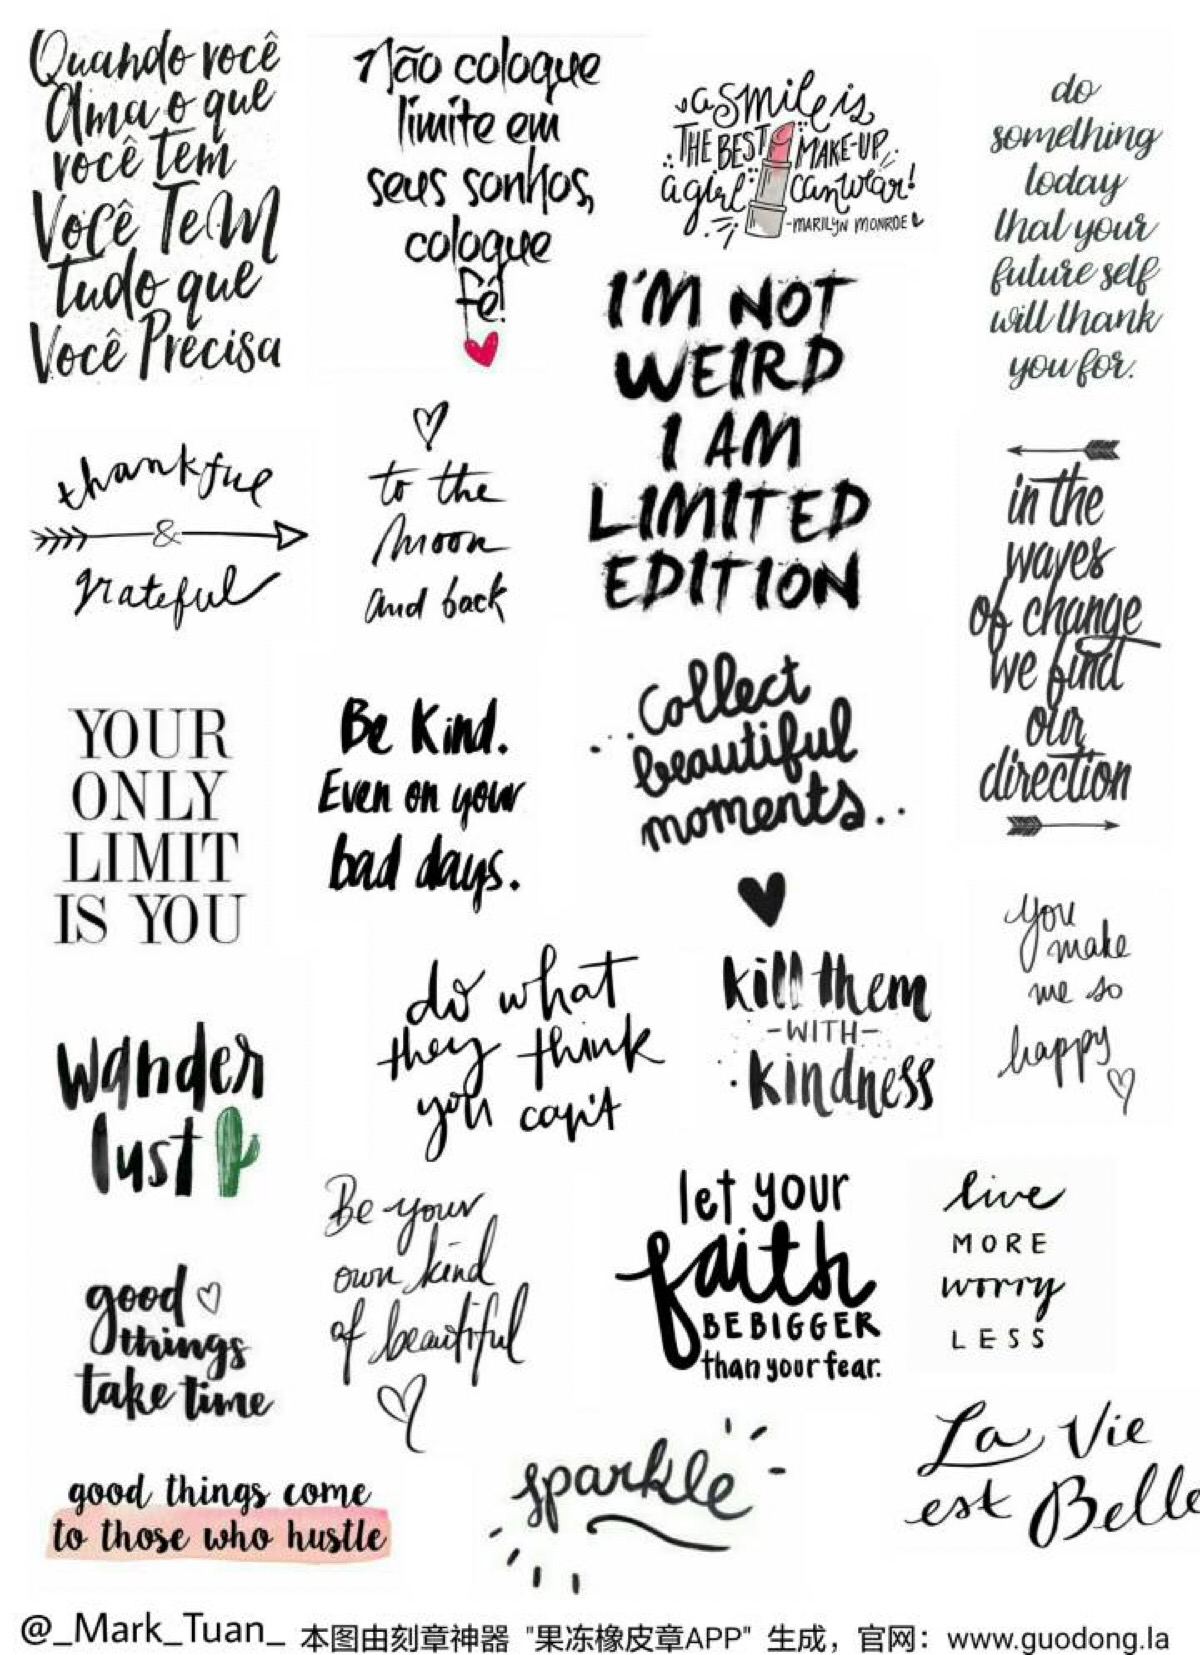 Quando você
Ama o que
você tem
Você Tem
Tudo que
Você Precisa
Não coloque
limite em
seus sonhos,
coloque
fé!
a smile is
THE BEST MAKE-UP
a girl can wear!
-MARILYN MONROE
do
something
today
that your
future self
will thank
you for.
I'M NOT
WEIRD
I AM
LIMITED
EDITION
thankful
&
grateful
to the
moon
and back
in the
waves
of change
we find
our
direction
YOUR
ONLY
LIMIT
IS YOU
Be Kind.
Even on your
bad days.
...collect
beautiful
moments...
you
make
me so
happy
wander
lust
do what
they think
you can't
kill them
-WITH-
kindness
Be your
own kind
of beautiful
let your
faith
BE BIGGER
than your fear.
live
MORE
worry
LESS
good
things
take time
La Vie
est Belle
good things come
to those who hustle
sparkle
@_Mark_Tuan_ 本图由刻章神器 "果冻橡皮章APP" 生成，官网：www.guodong.la